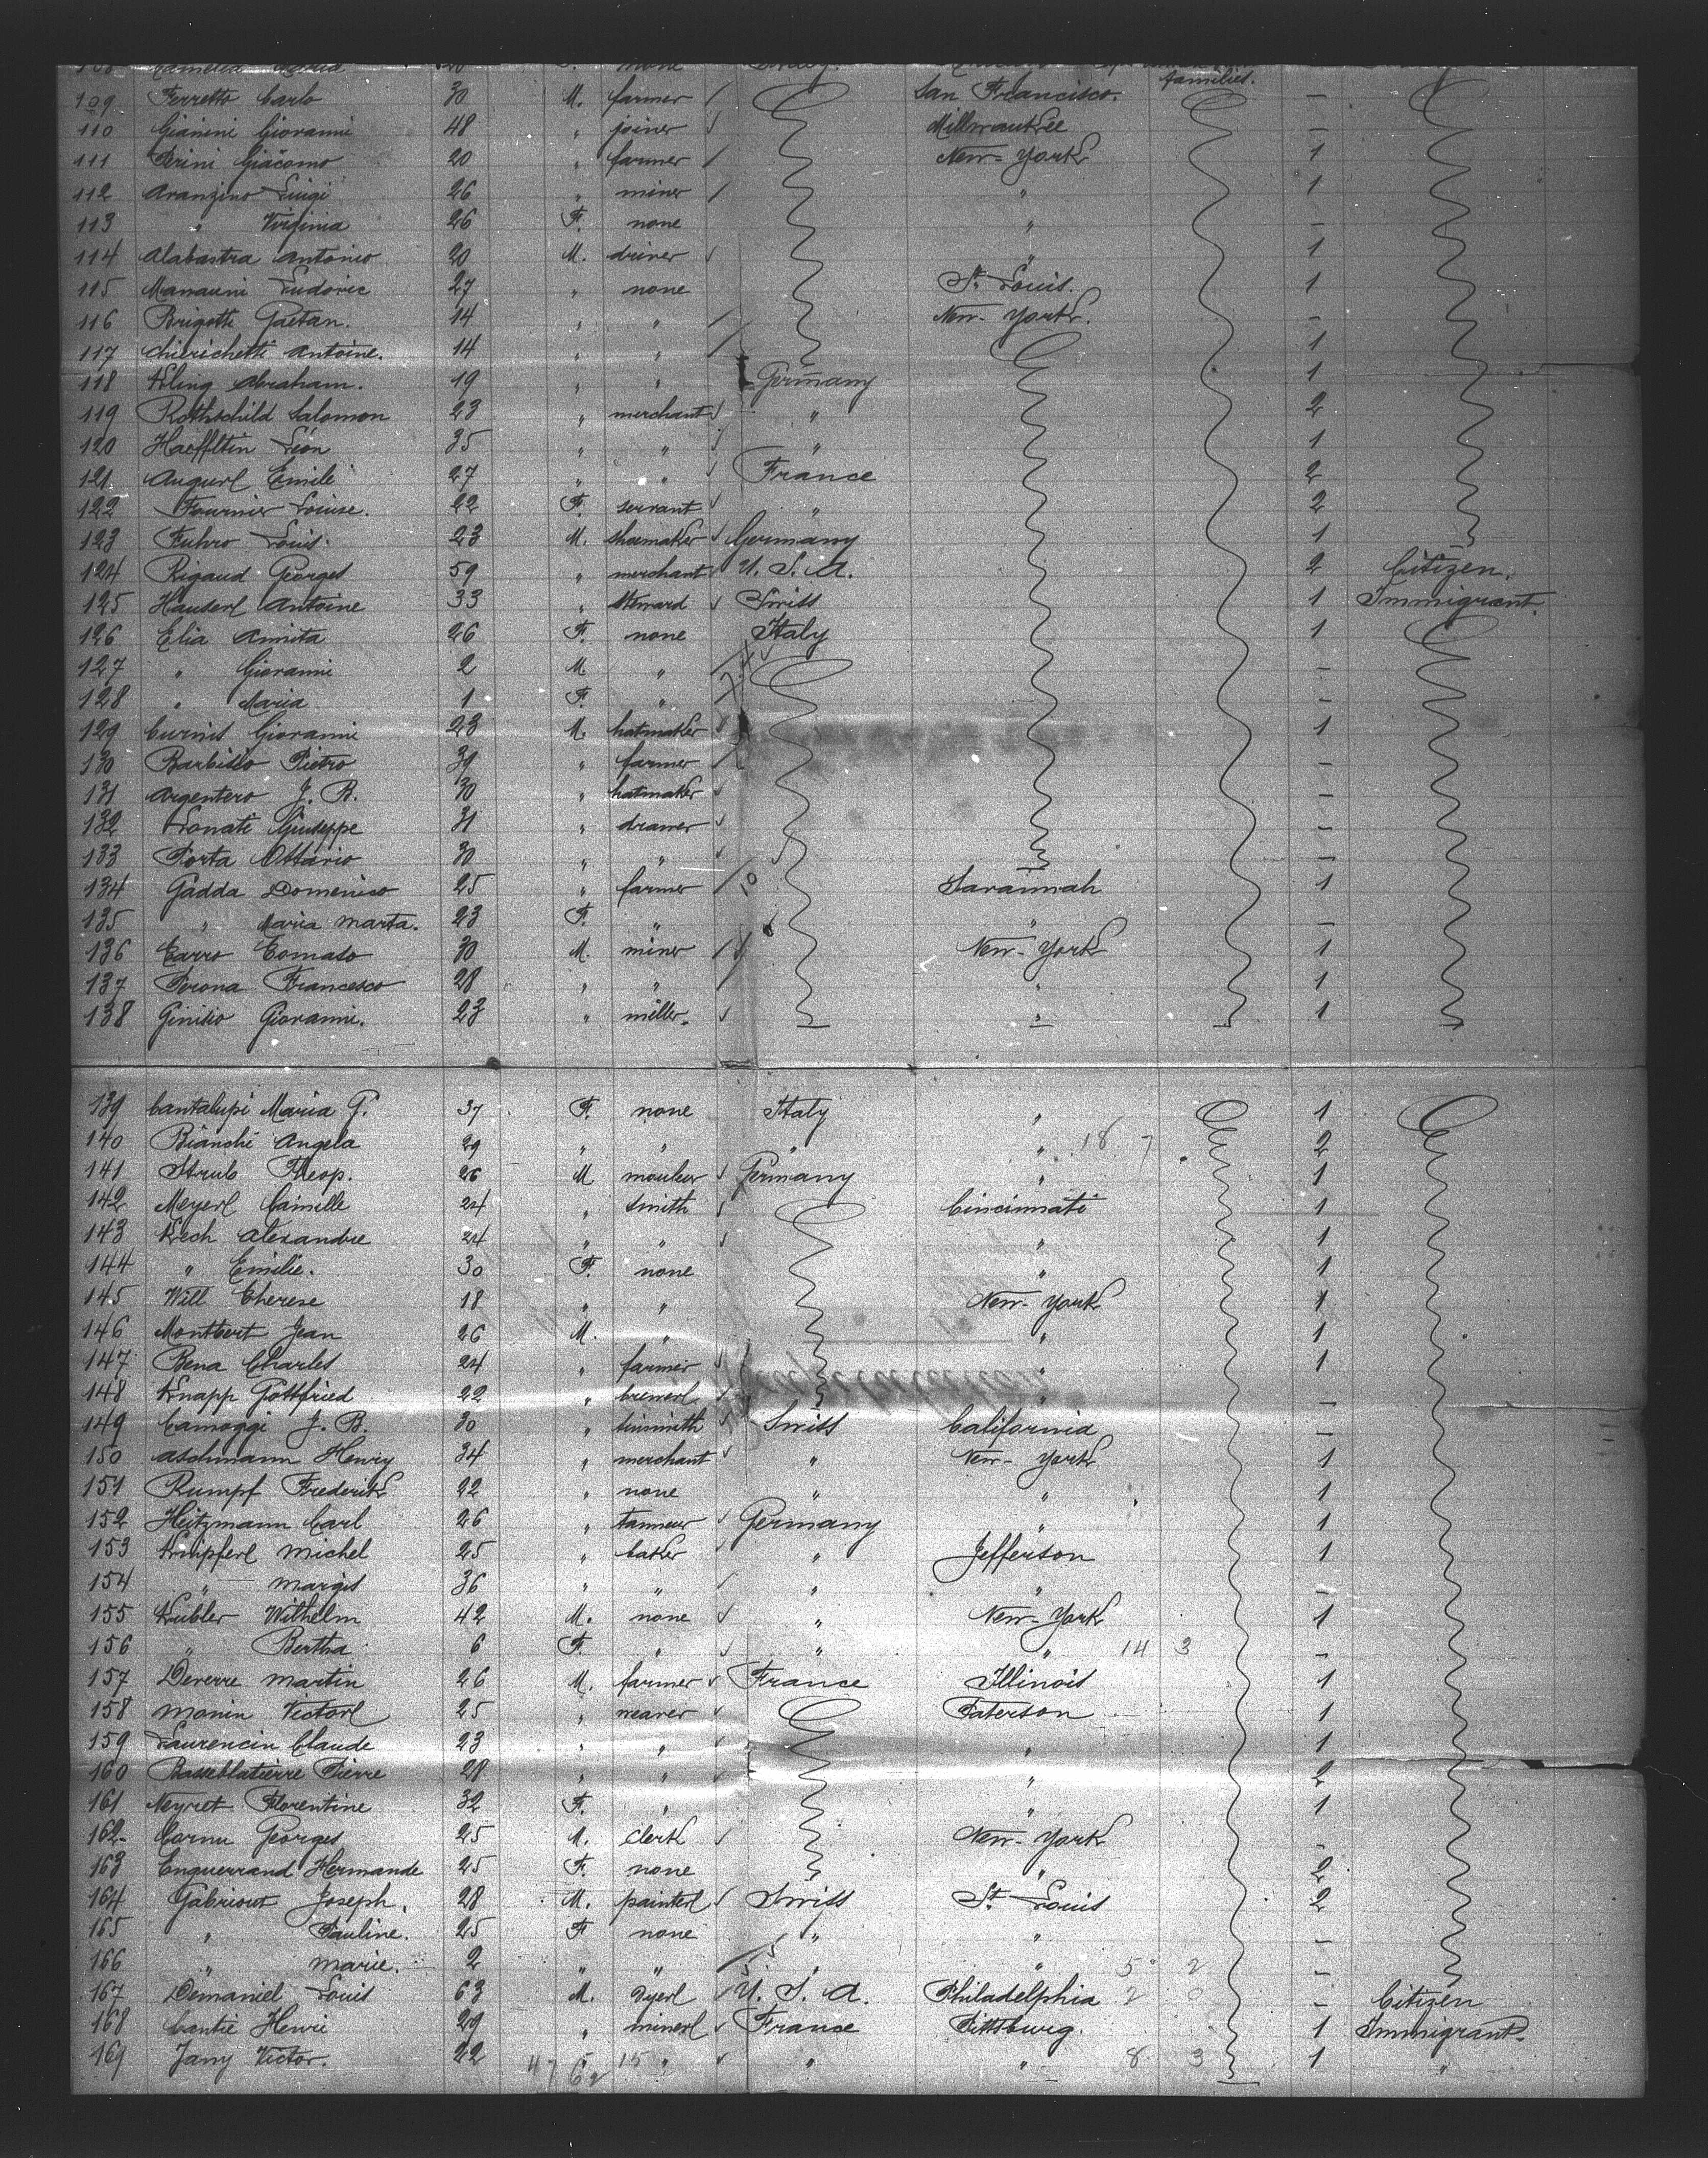 families.
109 Ferretto Carlo 30 M. farmer San Francisco. —
110 Gianini Giovanni 48 " joiner Millwaukee —
111 Perini Giacomo 20 " farmer New-York 1
112 Aranzino Luigi 26 " miner " 1
113 " Virginia 26 F. none " —
114 Alabastra Antonio 20 M. driver " 1
115 Manauni Ludovic 27 " none St. Louis. 1
116 Brigotti Gaetan. 14 " " New-York. —
117 Chierichetti Antoine. 14 " " 1
118 Kling Abraham. 19 " " Germany 1
119 Rothschild Salomon 23 " merchant " 2
120 Haeffltin Léon 35 " " " 1
121 Augurl Emile 27 " " France 2
122 Fournier Louise. 22 F. servant " 2
123 Fuhro Louis. 23 M. shoemaker Germany 1
124 Rigaud Georges 59 " merchant U. S. A. 2 Citizen.
125 Hauserl Antoine 33 " steward Swiss 1 Immigrant.
126 Elia Annita 26 F. none Italy 1
127 " Giovanni 2 M. " —
128 " Maria 1 F. " —
129 Curnis Giovanni 23 M. hatmaker 1
130 Barbisio Pietro 39 " farmer —
131 Argentero J. B. 30 " hatmaker —
132 Lonati Giuseppe 31 " drawer —
133 Porta Ottavio 30 " " —
134 Gadda Domenico 25 " farmer Savannah 1
135 " Maria Marta. 23 F. " " —
136 Carro Tomaso 30 M. miner New-York 1
137 Perona Francesco 28 " " " 1
138 Ginisio Giovanni. 23 " miller. " 1
139 Cantalupi Maria G. 37 F. none Italy " 1
140 Bianchi Angela 29 " " " " 18 7 2
141 Strub Theop. 26 M mouleur Germany " 1
142 Meyerl Camille 24 " smith Cincinnati 1
143 Kech Alexandre 24 " " " 1
144 " Emilie. 30 F. none " 1
145 Will Therese 18 " " New-York 1
146 Montbert Jean 26 M. " " 1
147 Bena Charles 24 " farmer " 1
148 Knapp Gottfried 22 " brewerl " —
149 Camoggi J. B. 30 " tinsmith Swiss California —
150 Aschmann Henry 34 " merchant " New-York 1
151 Rumpf Frederik 22 " none " " 1
152 Heitzmann Carl 26 " tanneur Germany " 1
153 Knipferl Michel 25 " baker " Jefferson 1
154 " Margit 36 " " " " —
155 Kubler Wilhelm 42 M. none " New-York 1
156 " Bertha 6 F. " " " 14 3 —
157 Deverre Martin 26 M. farmer France Illinois 1
158 Monin Victorl 25 " weaver Paterson 1
159 Laurencin Claude 23 " " " 1
160 Basseblatierre Pierre 28 " " " 2
161 Neyret Florentine 32 F. " " 1
162 Cornu Georges 25 M. clerk New-York —
163 Enguerrand Hermande 25 F. none " 2
164 Gabriout Joseph. 28 M. painterl Swiss St. Louis 2
165 " Pauline. 25 F none " " —
166 " Marie. 2 " " " " 5 2 —
167 Demaniel Louis 63 M. dyerl U. S. A. Philadelphia 2 0 — Citizen
168 Cantié Henri 29 " minerl France Pittsburg. 1 Immigrant.
169 Jany Victor. 22 " " " " 8 3 1 "
47 62 15